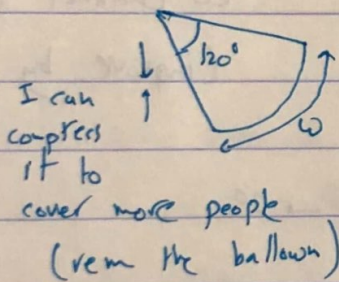 120°
I can
compress
it to
cover more people
(rem the ballown)
ω